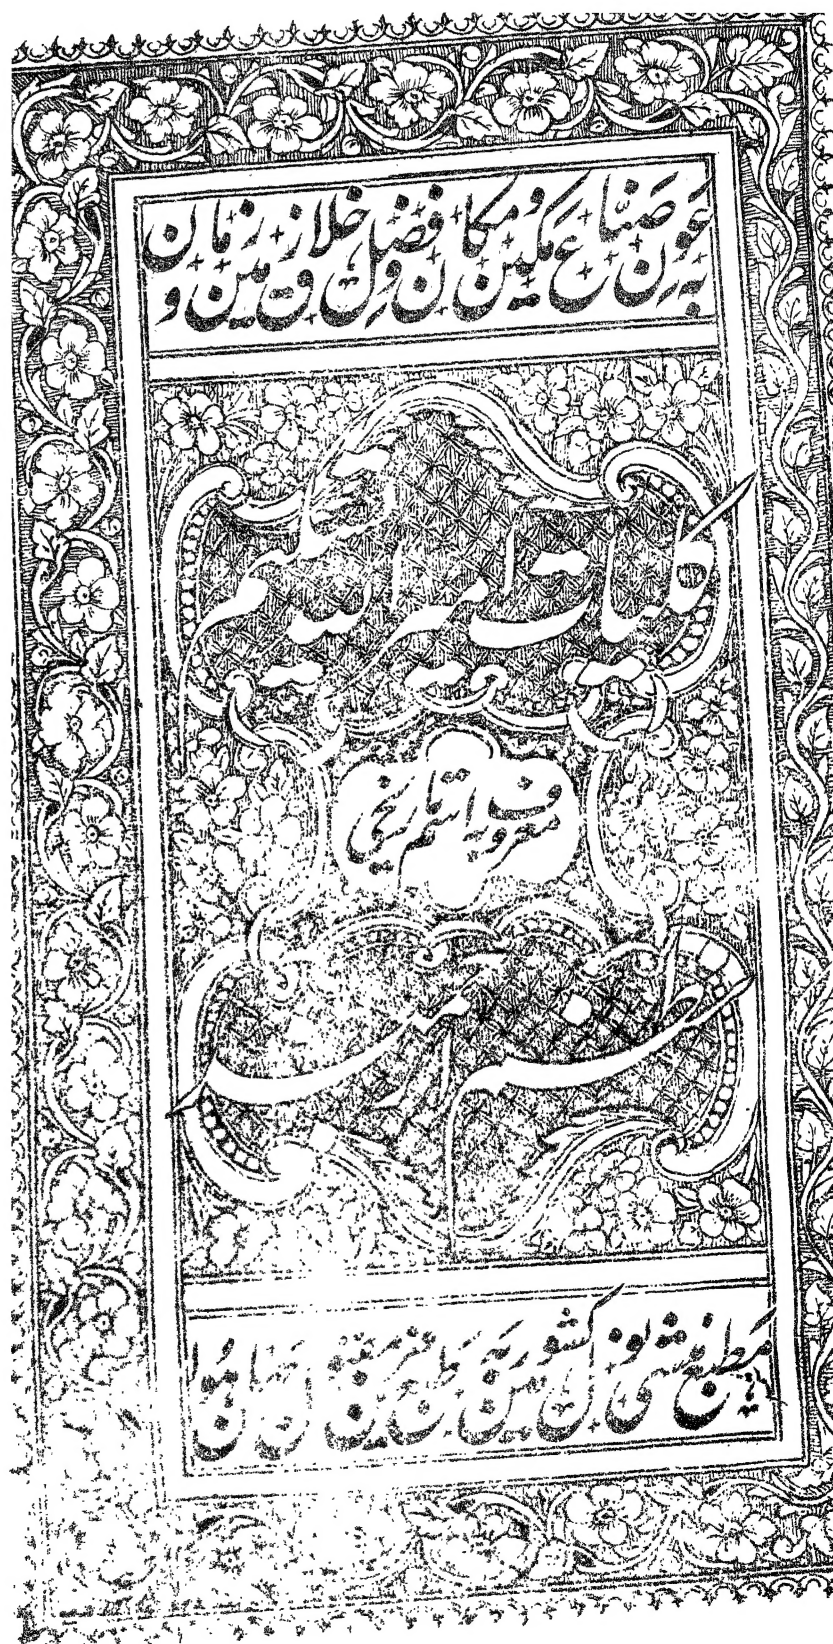 بعون صناع مکین و مکان و فضل خلاق زمین و زمان
کلیات امیر اللہ تسلیم
معروف بہ اسم تاریخی
نظم ارجمند
مطبع منشی نولکشور میں ہوا